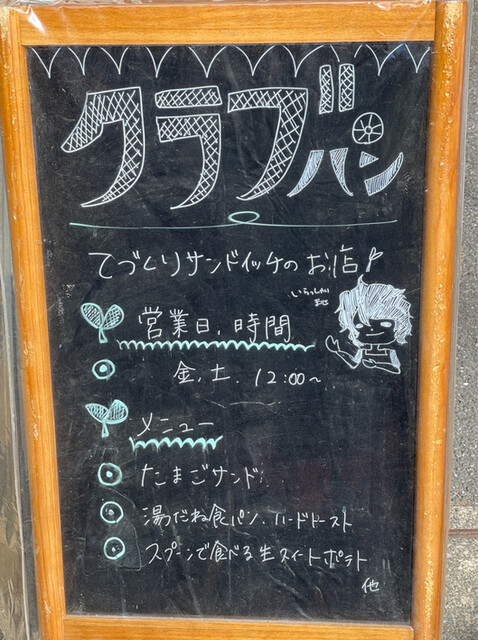 クラブパン
てづくりサンドイッチのお店
いらっしゃい
ませ
営業日、時間
金、土、12:00~
メニュー
たまごサンド
湯だね食パン、ハードトースト
スプーンで食べる生スイートポテト
他